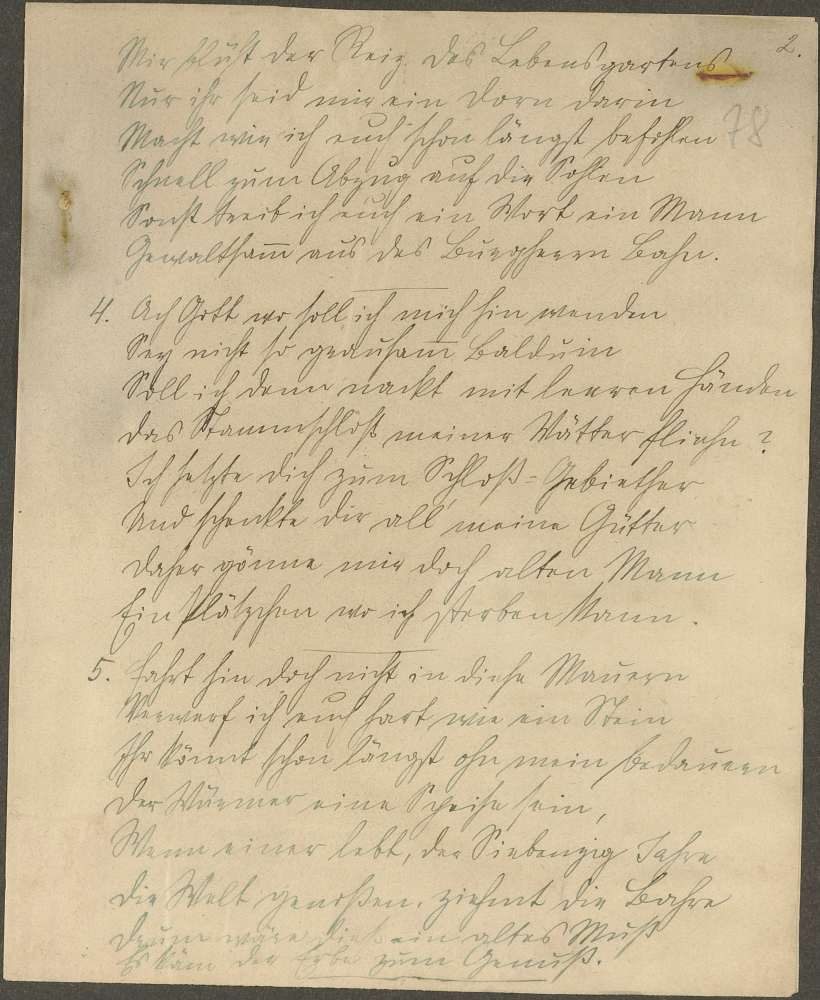 2.
Mir blüht der Reiz des Lebensgartens
Nur ihr seid mir ein Dorn darin
78
Macht wie ich euch schon längst befohlen
Schnell zum Abzug auf die Sohlen
Sonst treib ich euch ein Wort ein Mann
Gewaltsam̄ aus des Burgherrn Bahn.
4. Ach Gott wo soll ich mich hin wenden
Sey nicht so grausam̄ Balduin
Soll ich denn nackt mit leeren Händen
Das Stammschloß meiner Vätter fliehn?
Ich setzte dich zum Schloß=Gebiether
Und schenkte dir all' meine Gütter
Daher gönne mir doch alten Mann
Ein Plätzchen wo ich sterben kann.
5. Fahrt hin doch nicht in diese Mauern
Verwerf ich euch hart wie ein Stein
Ihr könnt schon längst ohn mein bedauern
Der Würmer eine Speise sein,
Wenn einer lebt, der Siebenzig Jahre
Die Welt genoßen, ziehmt die Bahre
Drum wäre dieß ein altes Muß
Es käm der Erbe zum Genuß.